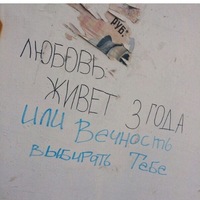 РУБ.
ЛЮБОВЬ
ЖИВЕТ 3 ГОДА
или Вечность
выбирать Тебе